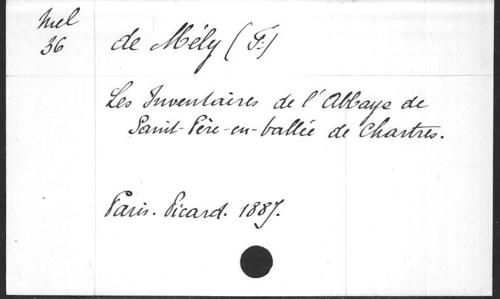 Mel
36
de Mély (F.)
Les Inventaires de l'Abbaye de
Saint-Père-en-Vallée de Chartres.
Paris. Picard. 1887.